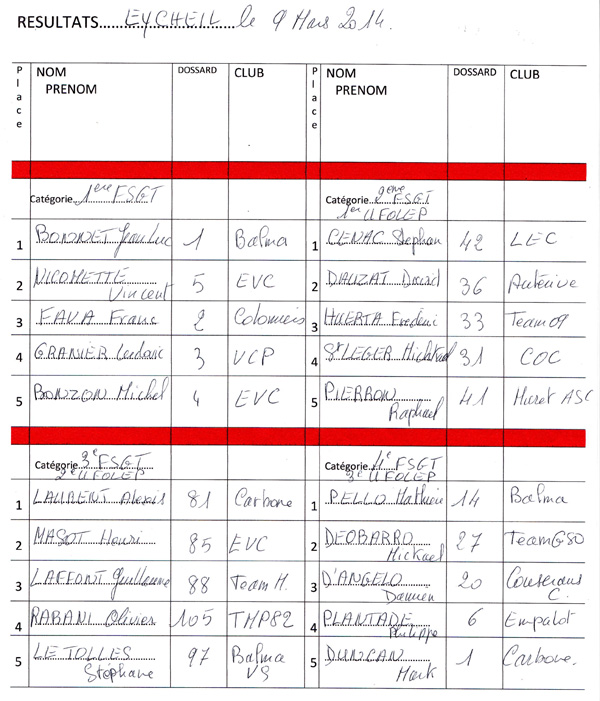 RESULTATS......EYCHEIL le 9 Mars 2014.
Place NOM PRENOM DOSSARD CLUB Place NOM PRENOM DOSSARD CLUB
Catégorie 1ere FSGT
1 BONNET Jean Luc 1 Balma
2 NICOMETTE Vincent 5 EVC
3 FAVA Franc 2 Colomiers
4 GRANIER Ludovic 3 VCP
5 BONZON Michel 4 EVC
Catégorie 2eme FSGT
1er UFOLEP
1 CENAC Stephan 42 LEC
2 DAUZAT David 36 Auterive
3 HUERTA Frederic 33 Team 09
4 St LEGER Michkael 31 COC
5 PIERRON Raphael 41 Muret ASC
Catégorie 3e FSGT
2e UFOLEP
1 LAURENT Alexis 81 Carbone
2 MASOT Henri 85 EVC
3 LAFFONT Guillaume 88 Team H.
4 RABANI Olivier 105 THP82
5 LE TOLLES Stéphane 97 Balma VS
Catégorie 4e FSGT
3e UFOLEP
1 PELLO Mathieu 14 Balma
2 DEOBARRO Mickael 27 Team GSO
3 D'ANGELO Damien 20 Couserans C.
4 PLANTADE Philippe 6 Empalot
5 DUNCAN Mark 1 Carbone.